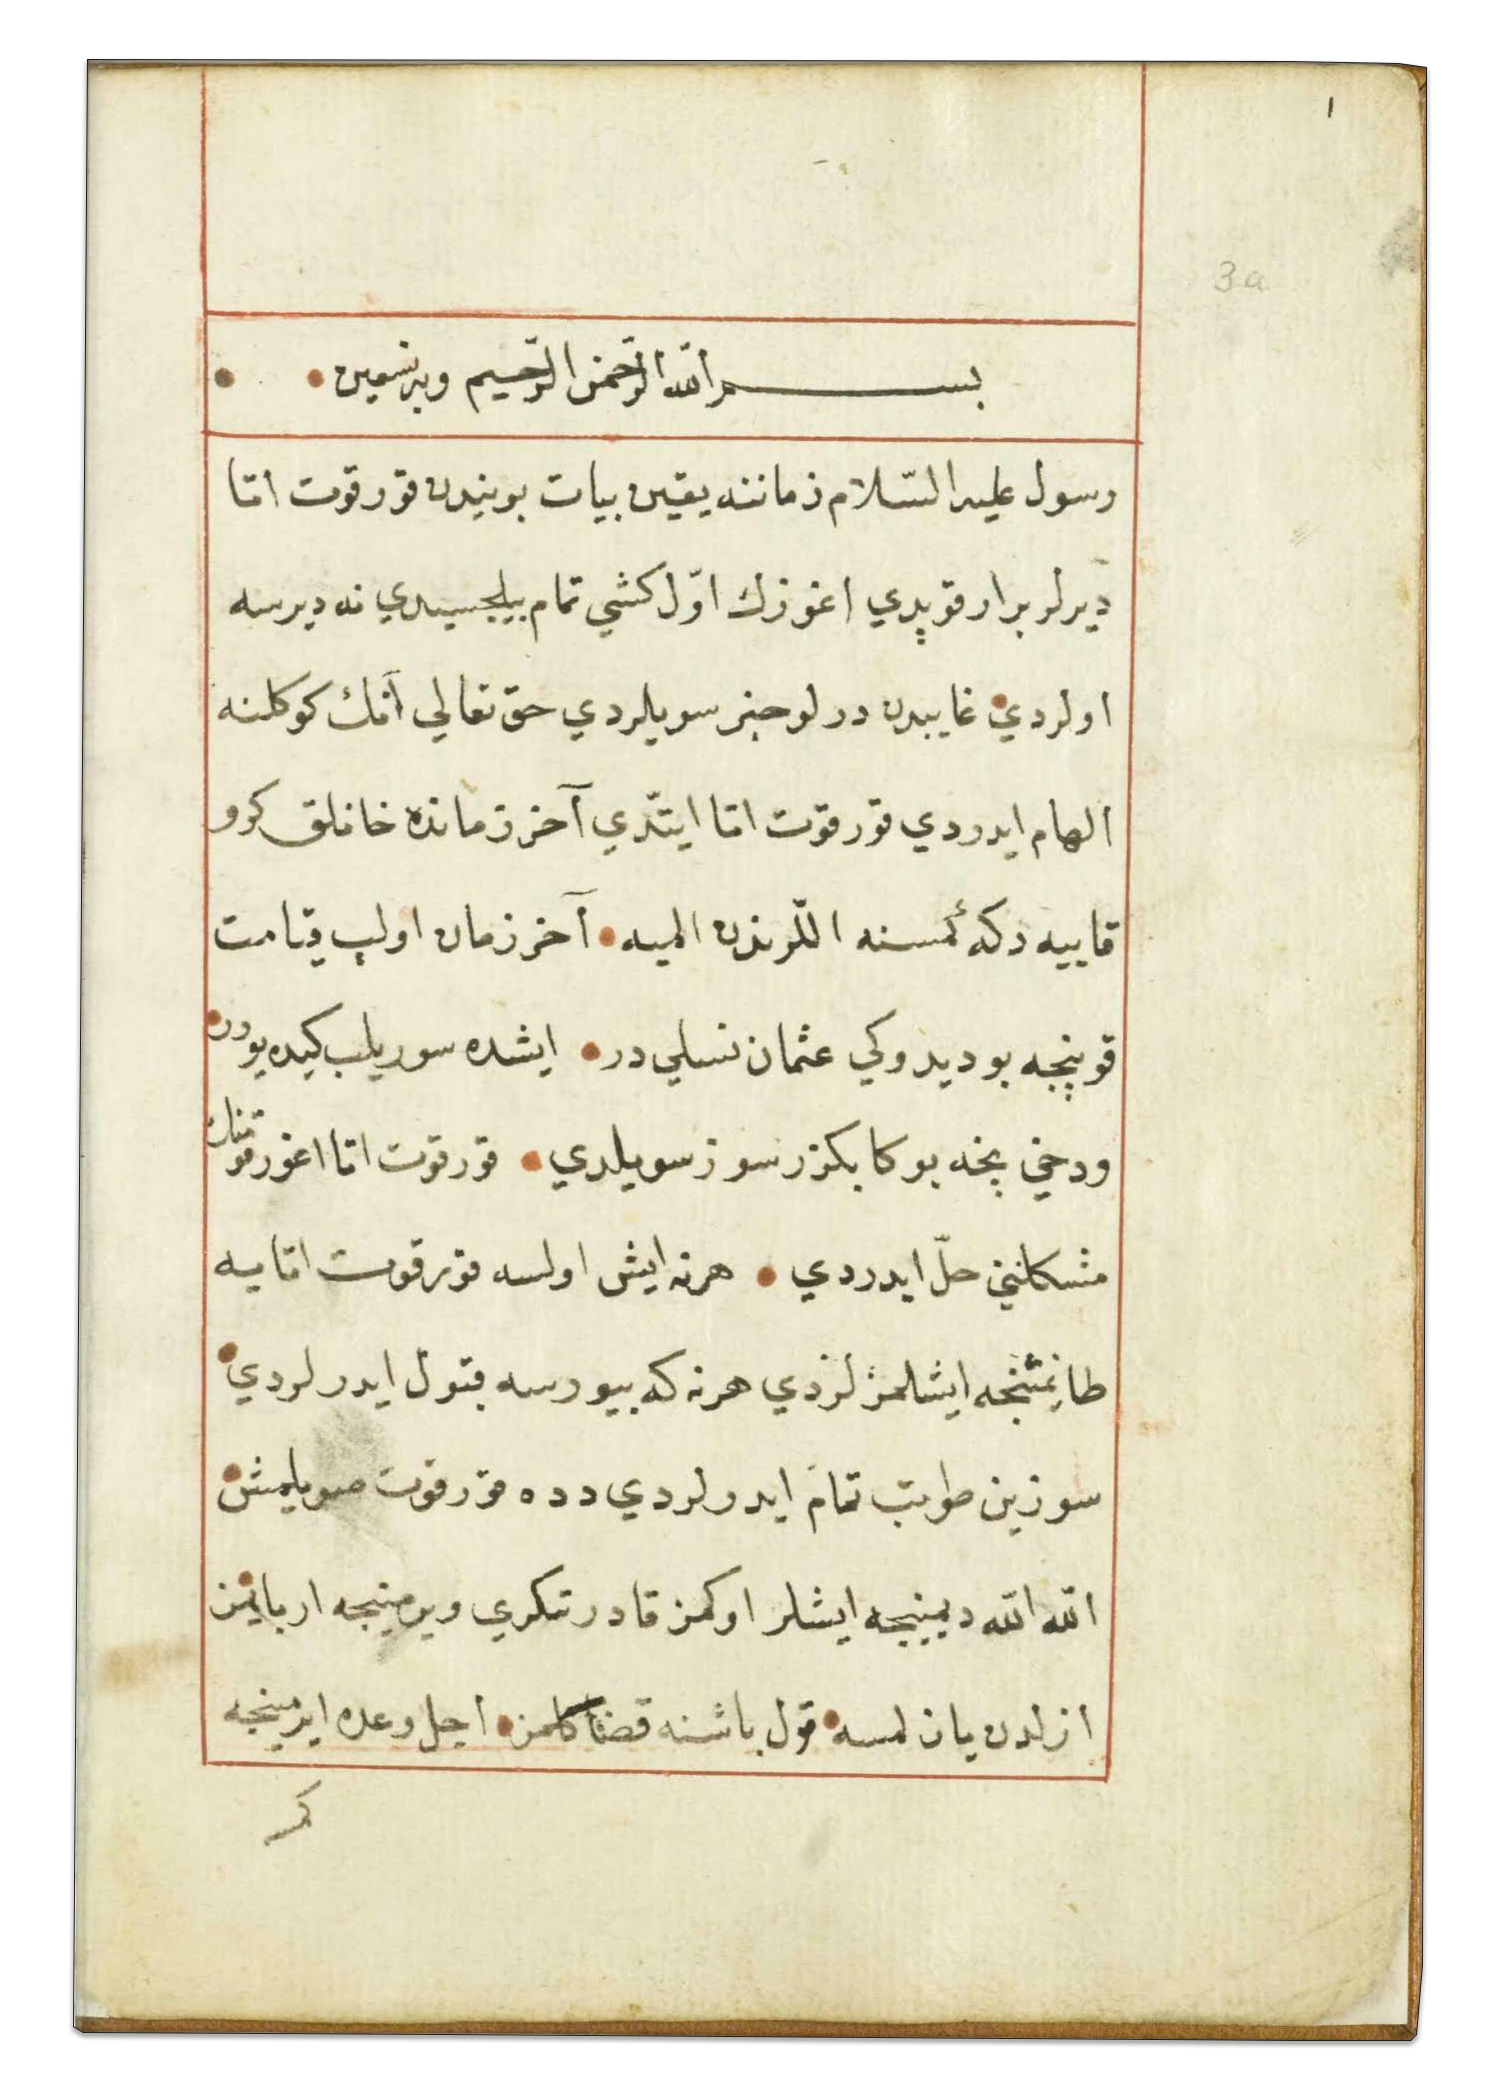 ١
3a
بسم الله الرّحمن الرّحيم وبه نستعين
رسول عليه السّلام زماننه يقين بيات بويندن قورقوت اتا
ديرلر بر ار قوپدي اغوزك اوّل كشي تمام بيلجسيدي نه ديرسه
اولردي غايبدن درلو خبر سويلردي حق تعالي آنك كوكلنه
الهام ايدردي قورقوت اتا ايتدّي آخر زمانده خانلق كرو
قاييه دكه كمسنه اللّرندن الميه آخر زمان اولپ قيامت
قوپنجه بو ديدوكي عثمان نسلي در ايشده سوريلب كيده يورر
ودخي نخه بوكا بكزر سوز سويلدي قورقوت اتا اغوز قومنك
مشكلنى حلّ ايدردي هر نه ايش اولسه قورقوت اتايه
طانمنجه ايشلمزلردي هر نه كه بيورسه قبول ايدرلردي
سوزين طوتب تمام ايدرلردي دده قورقوت صويلمش
الله الله ديمينجه ايشلر اوكمز قادر تنكري ويرمينجه ار بايمز
ازلدن يازلمسه قول باشنه قضا كلمز اجل وعده ايرمينجه
كمسه